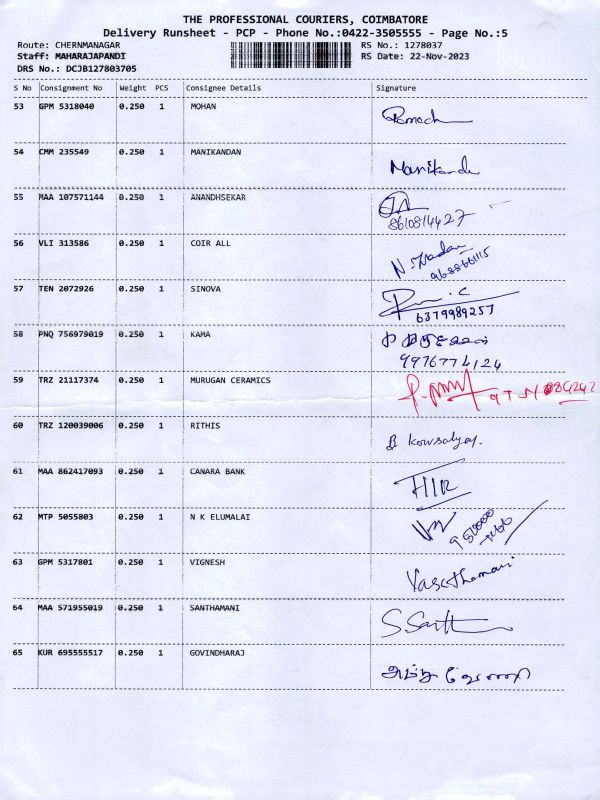 THE PROFESSIONAL COURIERS, COIMBATORE
Delivery Runsheet - PCP - Phone No.:0422-3505555 - Page No.:5
Route: CHERNMANAGAR RS No.: 1278037
Staff: MAHARAJAPANDI RS Date: 22-Nov-2023
DRS No.: DCJB127803705
S No Consignment No Weight PCS Consignee Details Signature
53 GPM 5318040 0.250 1 MOHAN
54 CMM 235549 0.250 1 MANIKANDAN Manikanda
55 MAA 107571144 0.250 1 ANANDHSEKAR
8610814427
56 VLI 313586 0.250 1 COIR ALL
57 TEN 2072926 0.250 1 SINOVA
6379989257
58 PNQ 756979019 0.250 1 KAMA
9976774124
59 TRZ 21117374 0.250 1 MURUGAN CERAMICS
60 TRZ 120039006 0.250 1 RITHIS Kowsalya
61 MAA 862417093 0.250 1 CANARA BANK
62 MTP 5055803 0.250 1 N K ELUMALAI
63 GPM 5317801 0.250 1 VIGNESH
64 MAA 571955019 0.250 1 SANTHAMANI
65 KUR 695555517 0.250 1 GOVINDHARAJ